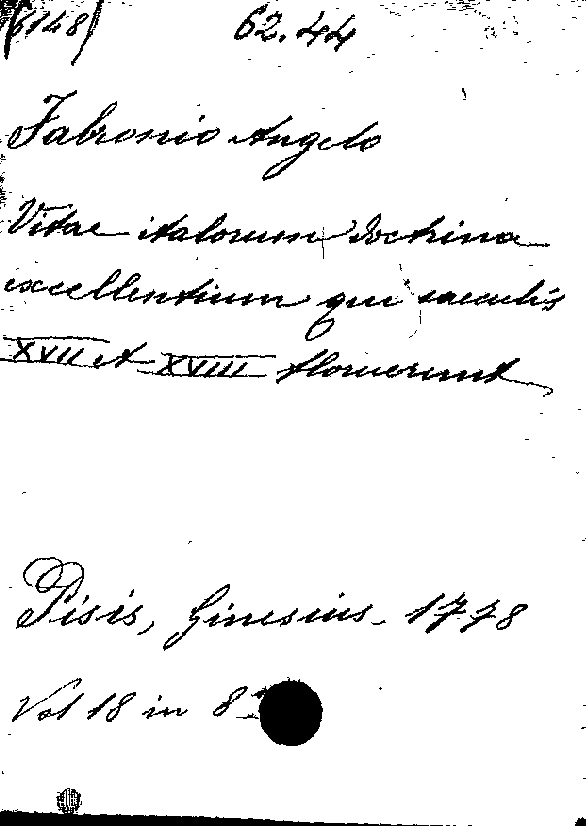 (6148) 62.44
Fabronio Angelo
Vitae italorum doctrina
excellentium qui saeculis
XVII et XVIII floruerunt
Pisis, Ginesius. 1778
Vol 18 in 8°